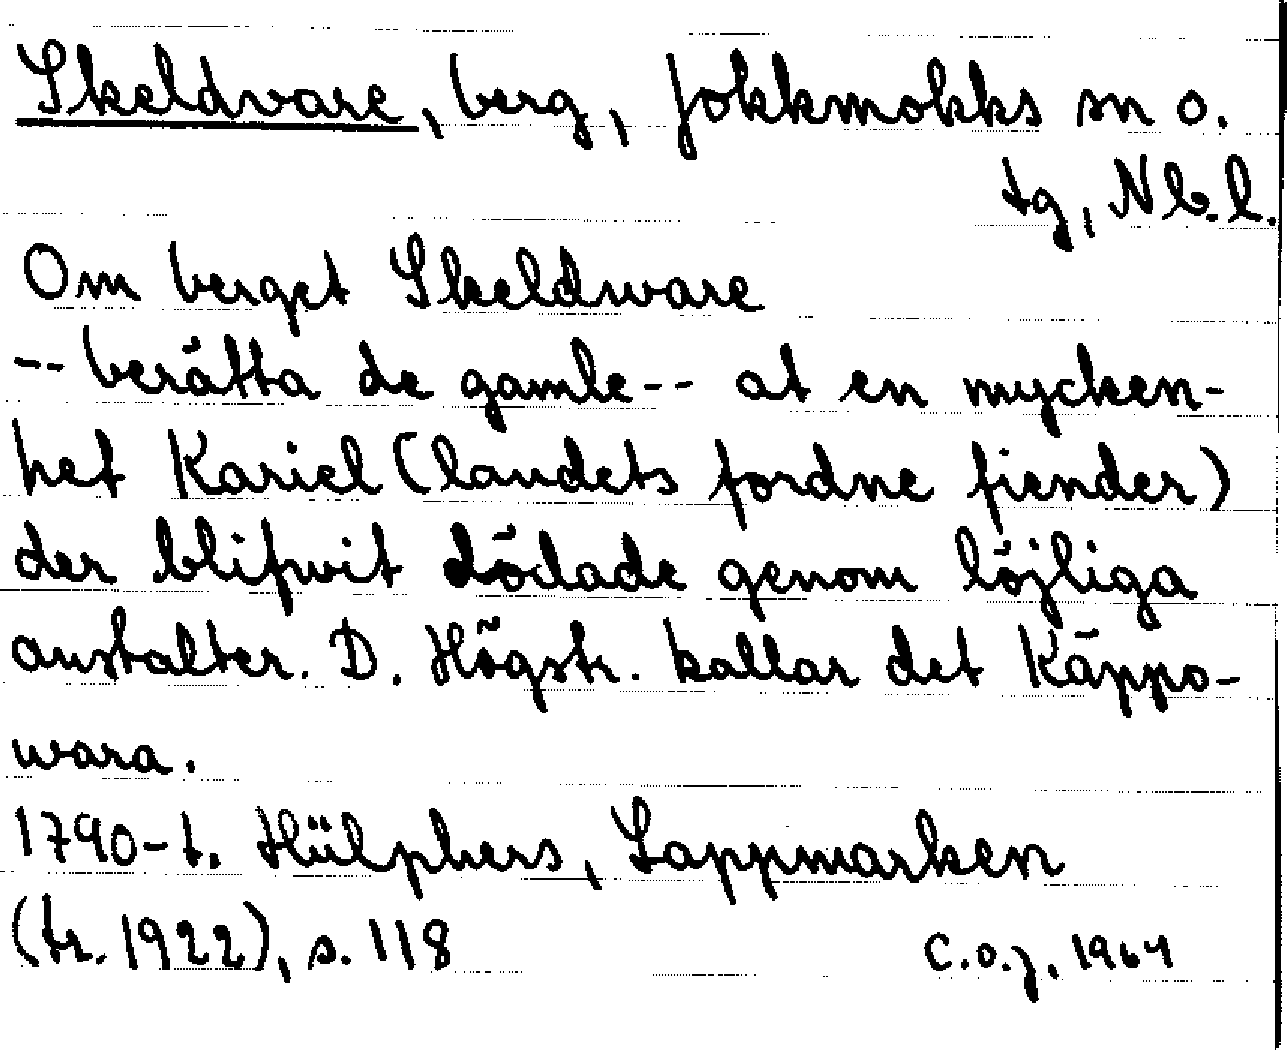 Skeldvare, berg, Jokkmokks sn o.
tg, Nb.l.
Om berget Skeldware
-- berätta de gamle -- at en mycken-
het Kariel (landets fordne fiender)
der blifwit dödade genom löjliga
anstalter. D. Högstr. kallar det Käppo-
wara.
1790-t. Hülphers, Lappmarken
(tr. 1922), s. 118 C.O.J. 1964